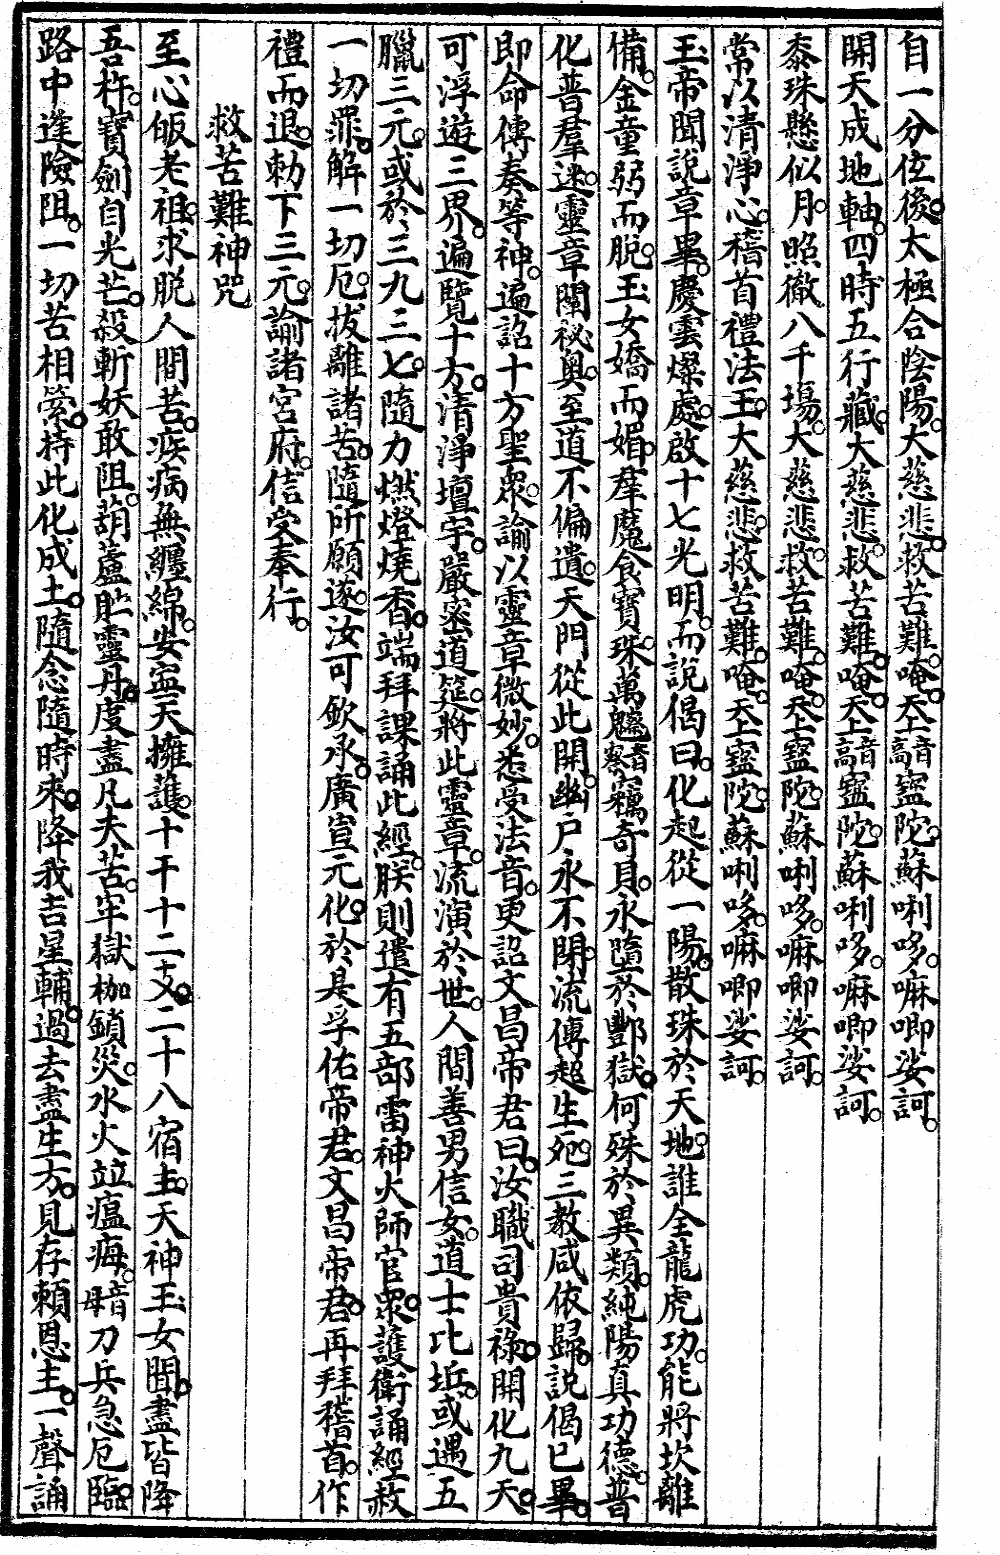 自一分位後。太極合陰陽。大慈悲。救苦難。唵。天上高音寍陀。蘇唎哆。嘛唧娑訶。
開天成地軸。四時五行藏。大慈悲。救苦難。唵。天上高音寍陀。蘇唎哆。嘛唧娑訶。
黍珠懸似月。照徹八千場。大慈悲。救苦難。唵。天上寍陀。蘇唎哆。嘛唧娑訶。
常以清淨心。稽首禮法王。大慈悲。救苦難。唵。天上寍陀。蘇唎哆。嘛唧娑訶。
玉帝聞說章畢。慶雲燦處。啟十七光明。而說偈曰。化起從一陽。散珠於天地。誰全龍虎功。能將坎離
備。金童弱而脫。玉女嬌而媚。羣魔食寶珠。萬魑音察竊奇貝。永墮於酆獄。何殊於異類。純陽真功德。普
化普羣迷。靈章闡祕奧。至道不偏遺。天門從此開。幽戶永不閉。流傳超生死。三教咸依歸。說偈已畢。
即命傳奏等神。遍詔十方聖衆。諭以靈章微妙。悉受法音。更詔文昌帝君曰。汝職司貴祿。開化九天。
可浮遊三界。遍覽十方。清淨壇宇。嚴密道筵。將此靈章。流演於世。人間善男信女。道士比坵。或遇五
臘三元。或於三九二七。隨力燃燈燒香。端拜課誦此經。朕則遣有五部雷神火師官衆。護衛誦經。赦
一切罪。解一切厄。拔離諸苦。隨所願遂。汝可欽承。廣宣元化。於是孚佑帝君。文昌帝君。再拜稽首。作
禮而退。勅下三元。諭諸宮府。信受奉行。
救苦難神咒
至心皈老祖。求脫人間苦。疾病無纏綿。安寍天擁護。十干十二支。二十八宿主。天神玉女聞。盡皆降
吾杵。寶劍自光芒。殺斬妖敢阻。葫蘆貯靈丹。度盡凡夫苦。牢獄枷鎖災。水火竝瘟痗。音母刀兵急厄臨。
路中逢險阻。一切苦相縈。持此化成土。隨念隨時來。降我吉星輔。過去盡生方。見存賴恩主。一聲誦